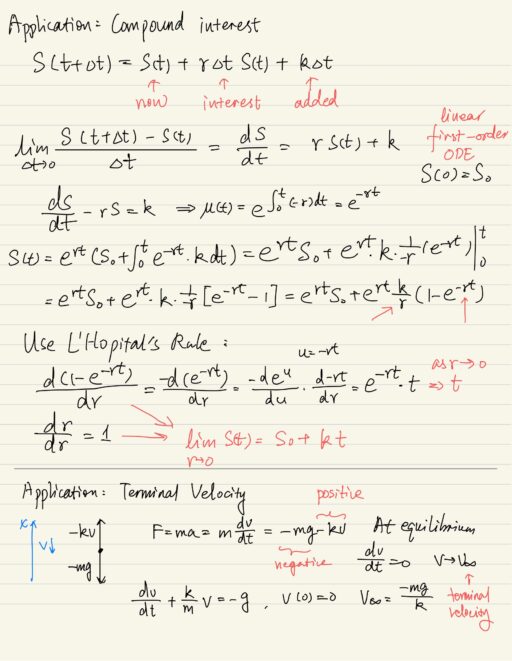 Application: Compound interest
S(t+Δt) = S(t) + rΔt S(t) + kΔt
↑ now ↑ interest ↑ added
lim Δt→0 (S(t+Δt) - S(t))/Δt = dS/dt = r S(t) + k
linear first-order ODE
S(0) = S₀
dS/dt - rS = k ⇒ μ(t) = e^(∫₀ᵗ(-r)dt) = e^(-rt)
S(t) = e^(rt) (S₀ + ∫₀ᵗ e^(-rt)·k dt) = e^(rt) S₀ + e^(rt)·k·1/(-r) (e^(-rt)) |₀ᵗ
= e^(rt) S₀ + e^(rt)·k·1/(-r) [e^(-rt) - 1] = e^(rt) S₀ + e^(rt) k/r (1 - e^(-rt))
Use L'Hopital's Rule:
u = -rt
d(1-e^(-rt))/dr = -d(e^(-rt))/dr = -de^u/du · d-rt/dr = e^(-rt)·t
as r→0 ⇒ t
dr/dr = 1 → lim r→0 S(t) = S₀ + kt
Application: Terminal Velocity
positive
x v↓ -kv -mg
F = ma = m dv/dt = -mg - kv
negative
At equilibrium
dv/dt = 0 V→V∞
dv/dt + k/m v = -g, v(0) = 0 V∞ = -mg/k
↑ terminal velocity